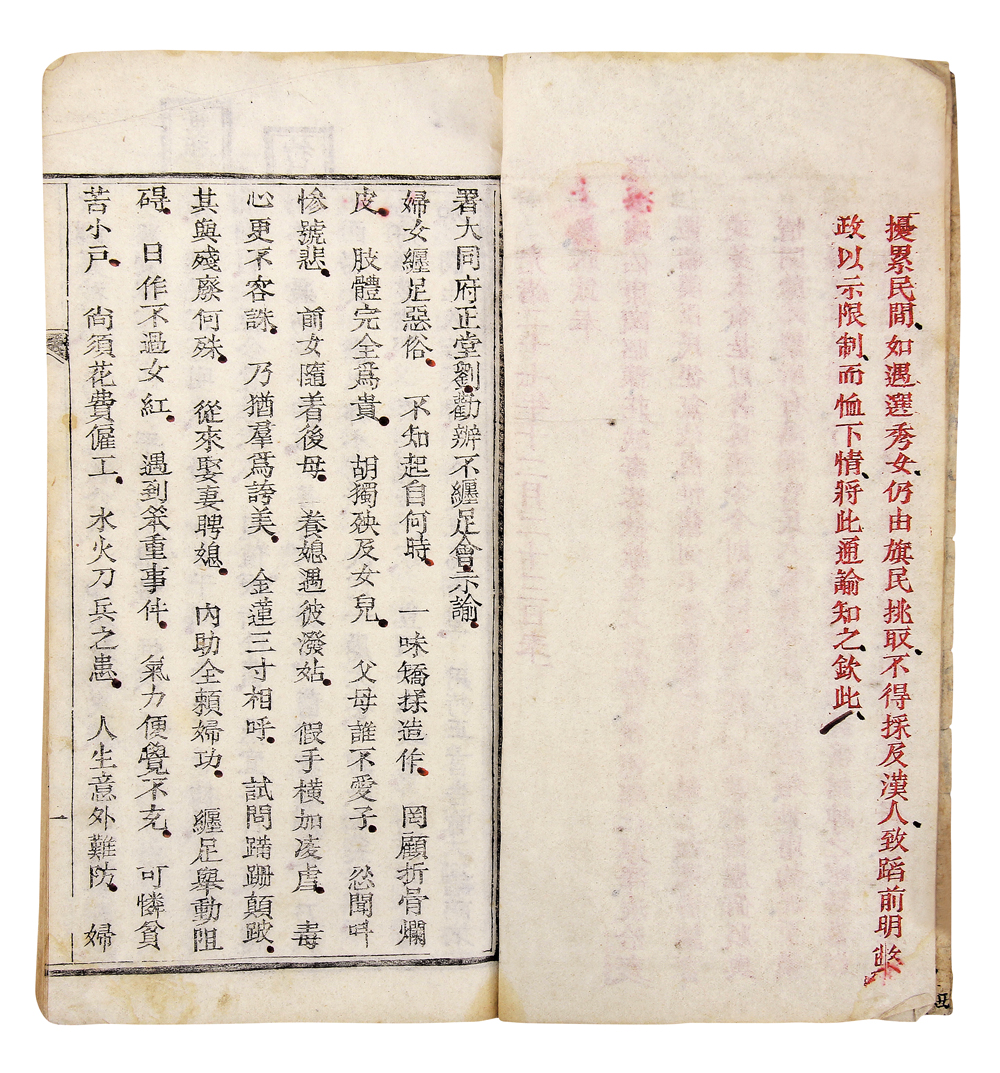 擾累民間、如遇選秀女、仍由旗民挑取、不得採及漢人、致蹈前明弊
政以示限制、而恤下情、將此通諭知之、欽此、
署大同府正堂劉勸辦不纏足會示諭
婦女纏足惡俗 不知起自何時 一味矯揉造作 罔顧折骨爛
皮 肢體完全爲貴 胡獨殃及女兒 父母誰不愛子 忍聞呌
慘號悲 前女隨着後母 養媳遇彼潑姑 假手橫加凌虐 毒
心更不容誅 乃猶羣爲誇美 金蓮三寸相呼 試問蹣跚顛跛
其與殘廢何殊 從來娶妻聘媳 內助全賴婦功 纏足舉動阻
碍 日作不過女紅 遇到笨重事件 氣力便覺不充 可憐貧
苦小戶 尙須花費僱工 水火刀兵之患 人生意外難防 婦
一